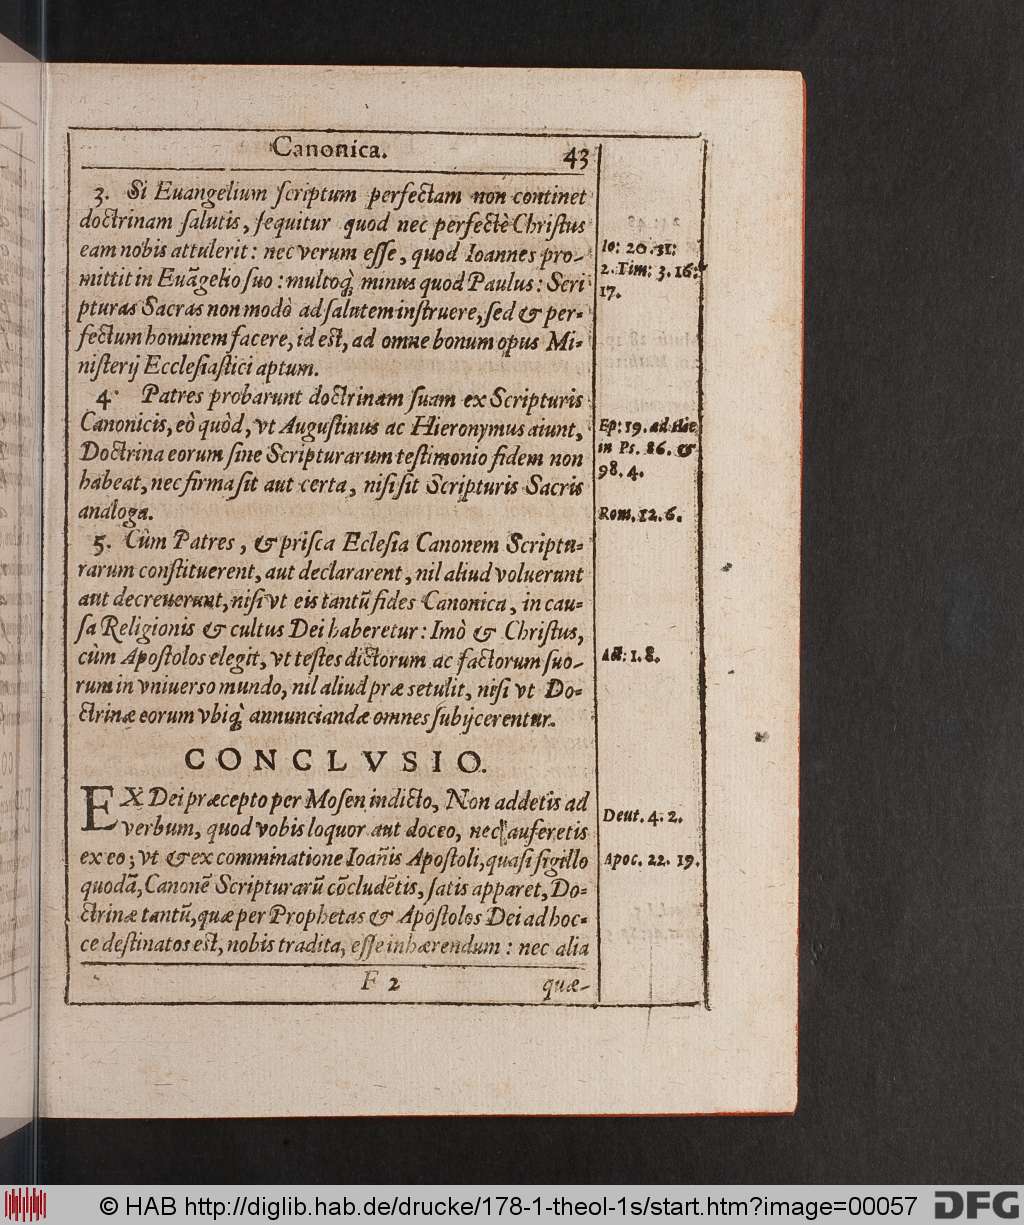 Canonica. 43
3. Si Euangelium ſcriptum perfectam non continet
doctrinam ſalutis, ſequitur quod nec perfectè Chriſtus
eam nobis attulerit: nec verum eſſe, quod Ioannes pro-
mittit in Euāgelio ſuo: multoq́; minus quod Paulus: Scri
pturas Sacras non modò ad ſalutem inſtruere, ſed & per-
fectum hominem facere, id eſt, ad omne bonum opus Mi-
niſterij Eccleſiaſtici aptum.
Io: 20. 31:
2. Tim: 3. 16:
17.
4. Patres probarunt doctrinam ſuam ex Scripturis
Canonicis, eò quòd, vt Auguſtinus ac Hieronymus aiunt,
Doctrina eorum ſine Scripturarum teſtimonio fidem non
habeat, nec firma ſit aut certa, niſi ſit Scripturis Sacris
analoga.
Ep: 19. ad Hie
in Ps. 86. &
98. 4.
Rom. 12. 6.
5. Cùm Patres, & priſca Ecleſia Canonem Scriptu-
rarum conſtituerent, aut declararent, nil aliud voluerunt
aut decreuerunt, niſi vt eis tantũ fides Canonica, in cau-
ſa Religionis & cultus Dei haberetur: Imò & Chriſtus,
cùm Apoſtolos elegit, vt teſtes dictorum ac factorum ſuo-
rum in vniuerso mundo, nil aliud præ setulit, niſi vt Do-
ctrinæ eorum vbiq́; annunciandæ omnes ſubijcerentur.
Act: 1. 8.
CONCLVSIO.
EX Dei præcepto per Moſen indicto, Non addetis ad
verbum, quod vobis loquor aut doceo, nec auferetis
ex eo; vt & ex comminatione Ioañis Apoſtoli, quaſi ſigillo
quodã, Canonẽ Scripturarũ cōcludẽtis, ſatis apparet, Do-
ctrinæ tantũ, quæ per Prophetas & Apoſtolos Dei ad hoc-
ce deſtinatos eſt, nobis tradita, eſſe inhærendum: nec alia
Deut. 4. 2.
Apoc. 22. 19.
F 2 quæ-
© HAB http://diglib.hab.de/drucke/178-1-theol-1s/start.htm?image=00057
DFG